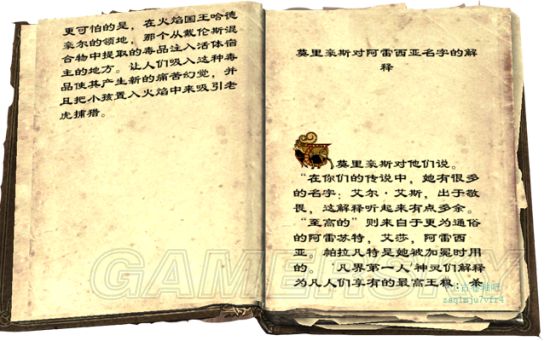 更可怕的是，在火焰国王哈德
亲尔的领地，那个从戴伦斯混
合物中提取的毒品注入活体宿
主的地方。让人们吸入这种毒
品使其产生新的痛苦幻觉，并
且把小孩置入火焰中来吸引老
虎捕猎。
莫里亲斯对阿雷西亚名字的解
释
莫里亲斯对他们说。
“在你们的传说中，她有很多
的名字：艾尔·艾斯，出于敬
畏，这解释听起来有点多余。
“至高的”则来自于更为通俗
的阿雷苏特，艾莎，阿雷西
亚。帕拉凡特是她被加冕时用
的。‘凡界第一人’神灵们解释
为凡人们享有的最高王权。余
GAMERSKY
zaqimju7vfr4